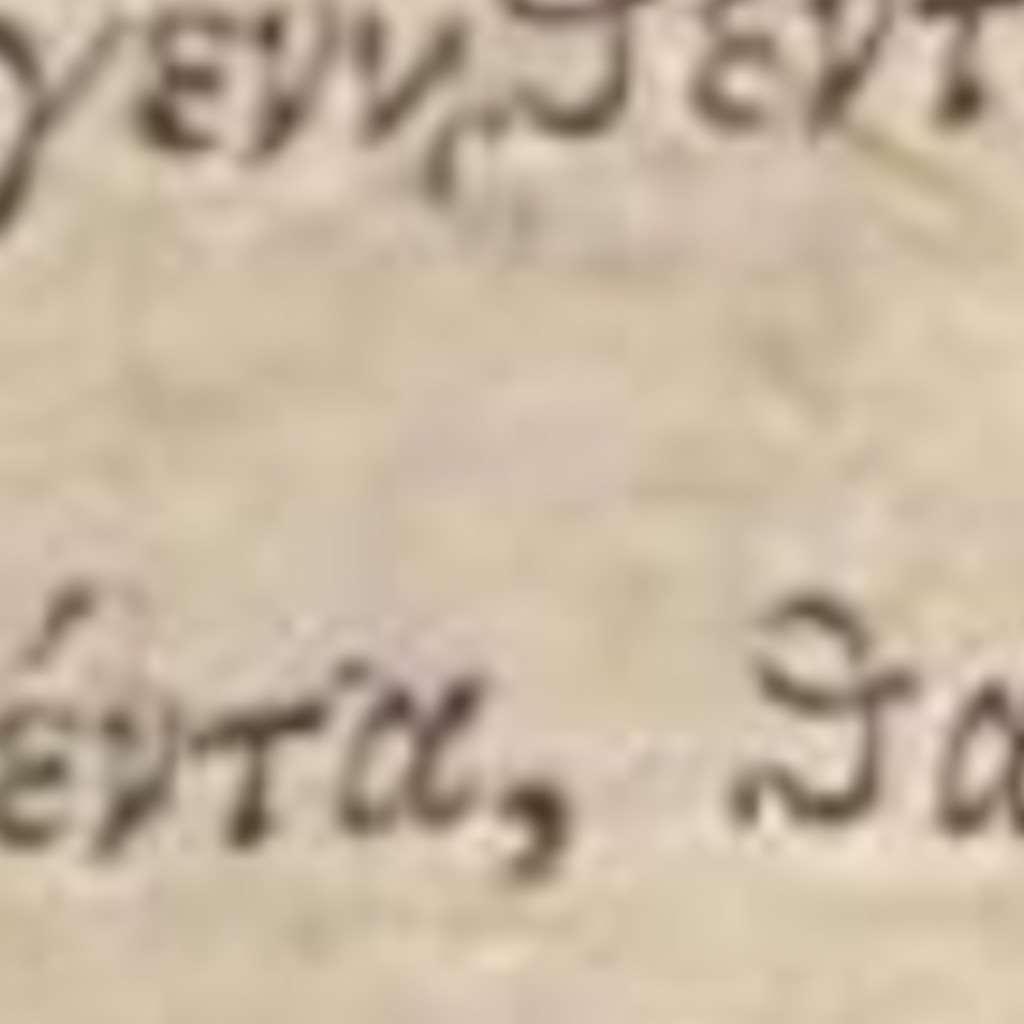 γεννϑεντ
έντα, ϑα